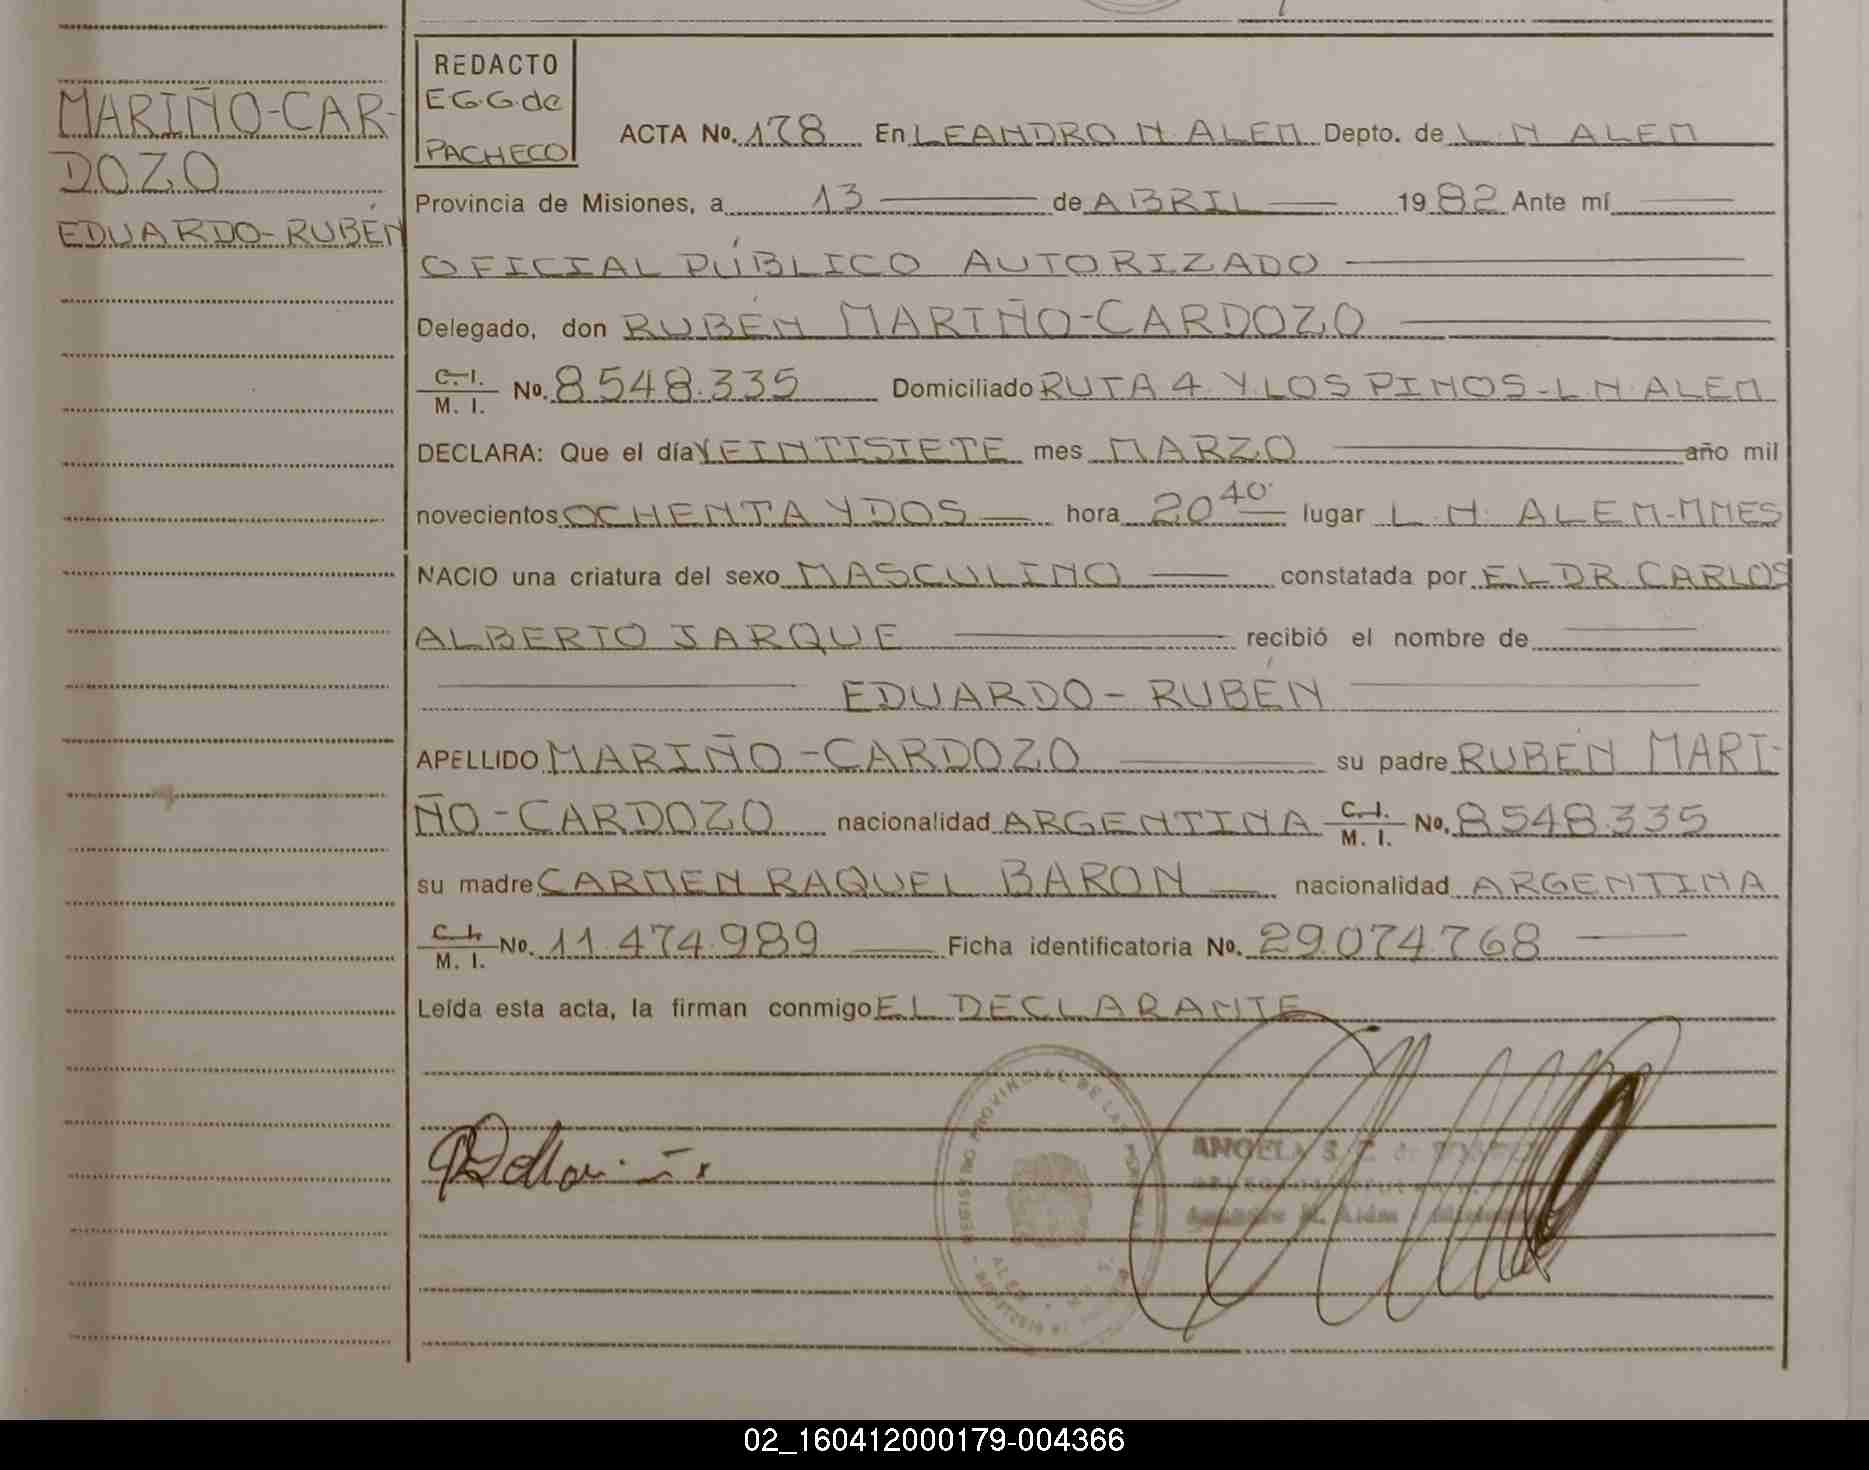 MARIÑO-CAR-
DOZO
EDUARDO-RUBÉN
REDACTO
E.G.G. de
PACHECO
ACTA No. 178 En LEANDRO N. ALEM Depto. de L. N. ALEM
Provincia de Misiones, a 13 de ABRIL 1982 Ante mí
OFICIAL PÚBLICO AUTORIZADO
Delegado, don RUBÉN MARIÑO-CARDOZO
C. I.
M. I. No. 8548.335 Domiciliado RUTA 4 Y LOS PINOS-L.N. ALEM
DECLARA: Que el día VEINTISIETE mes MARZO año mil
novecientos OCHENTA Y DOS hora 20 40 lugar L. N. ALEM-MNES
NACIO una criatura del sexo MASCULINO constatada por EL DR. CARLOS
ALBERTO JARQUE recibió el nombre de
EDUARDO-RUBÉN
APELLIDO MARIÑO-CARDOZO su padre RUBÉN MARI-
ÑO-CARDOZO nacionalidad ARGENTINA C. I. M. I. No. 8548.335
su madre CARMEN RAQUEL BARON nacionalidad ARGENTINA
C. I.
M. I. No. 11.474.989 Ficha identificatoria No. 29.074.768
Leída esta acta, la firman conmigo EL DECLARANTE
REGISTRO PROVINCIAL DE LAS PERSONAS
ANGELA S.
02_160412000179-004366